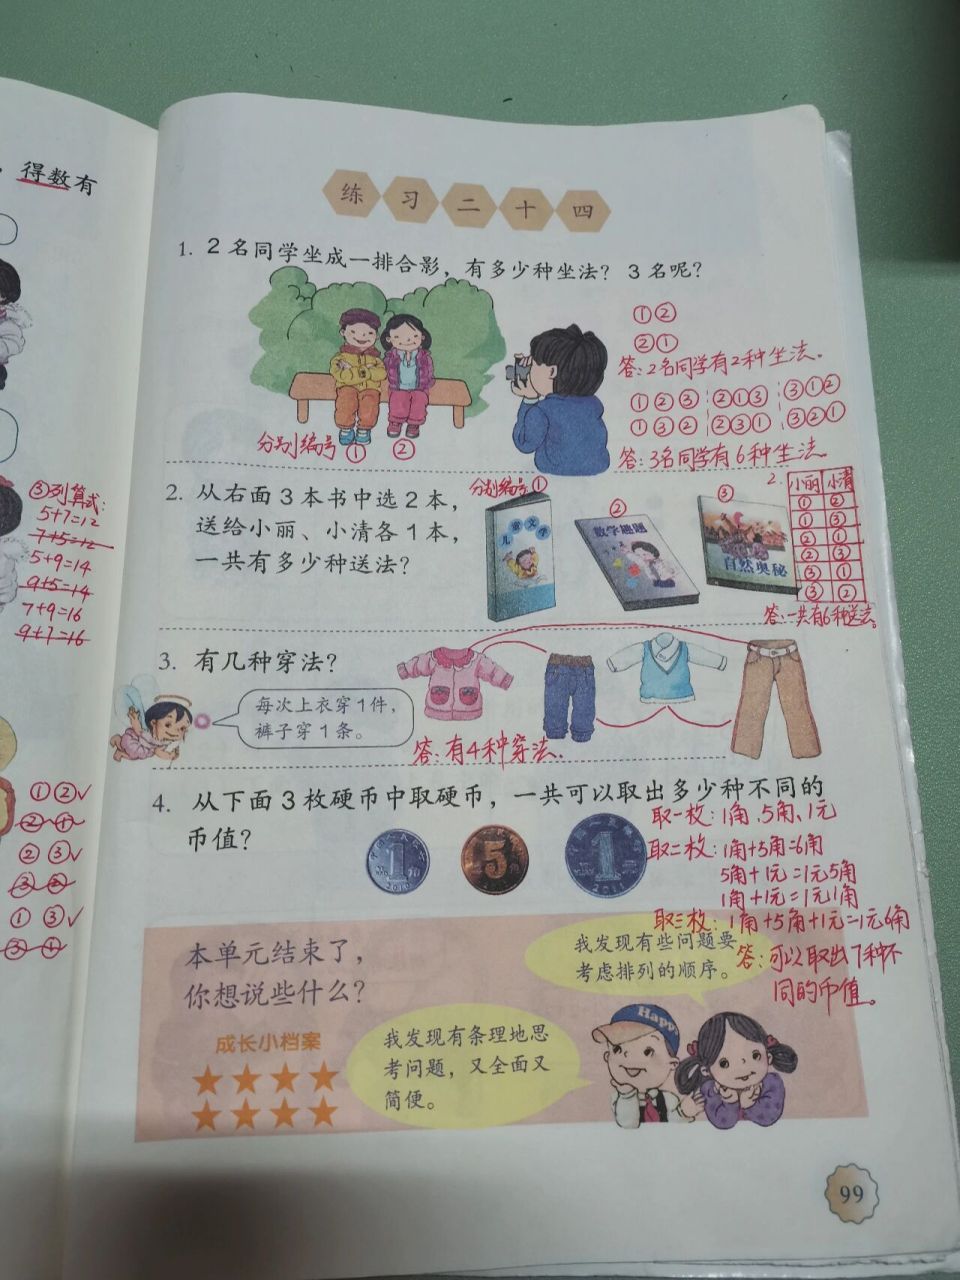 ，得数有
③列算式：
5+7=12
7+5=12
5+9=14
9+5=14
7+9=16
9+7=16
① ②✓
② ③✓
① ③✓
练习二十四
1. 2名同学坐成一排合影，有多少种坐法？ 3名呢？
① ②
② ①
答：2名同学有2种坐法。
① ② ③ ②①③ ③①②
① ③ ② ②③① ③②①
分别编号 ① ②
答：3名同学有6种坐法
2. 从右面3本书中选2本，
送给小丽、小清各1本，
一共有多少种送法？
分别编号① ② ③
儿童文学
数学趣题
自然奥秘
2. 小丽 小清
① ②
① ③
② ①
② ③
③ ①
③ ②
答：一共有6种送法。
3. 有几种穿法？
每次上衣穿1件，
裤子穿1条。
答：有4种穿法.
4. 从下面3枚硬币中取硬币，一共可以取出多少种不同的
币值？
1角
5角
1
2011
取一枚：1角、5角、1元
取二枚：1角+5角=6角
5角+1元=1元5角
1角+1元=1元1角
取三枚：1角+5角+1元=1元6角
答：可以取出7种不
同的币值。
本单元结束了，
你想说些什么？
成长小档案
我发现有些问题要
考虑排列的顺序。
我发现有条理地思
考问题，又全面又
简便。
Happy
99